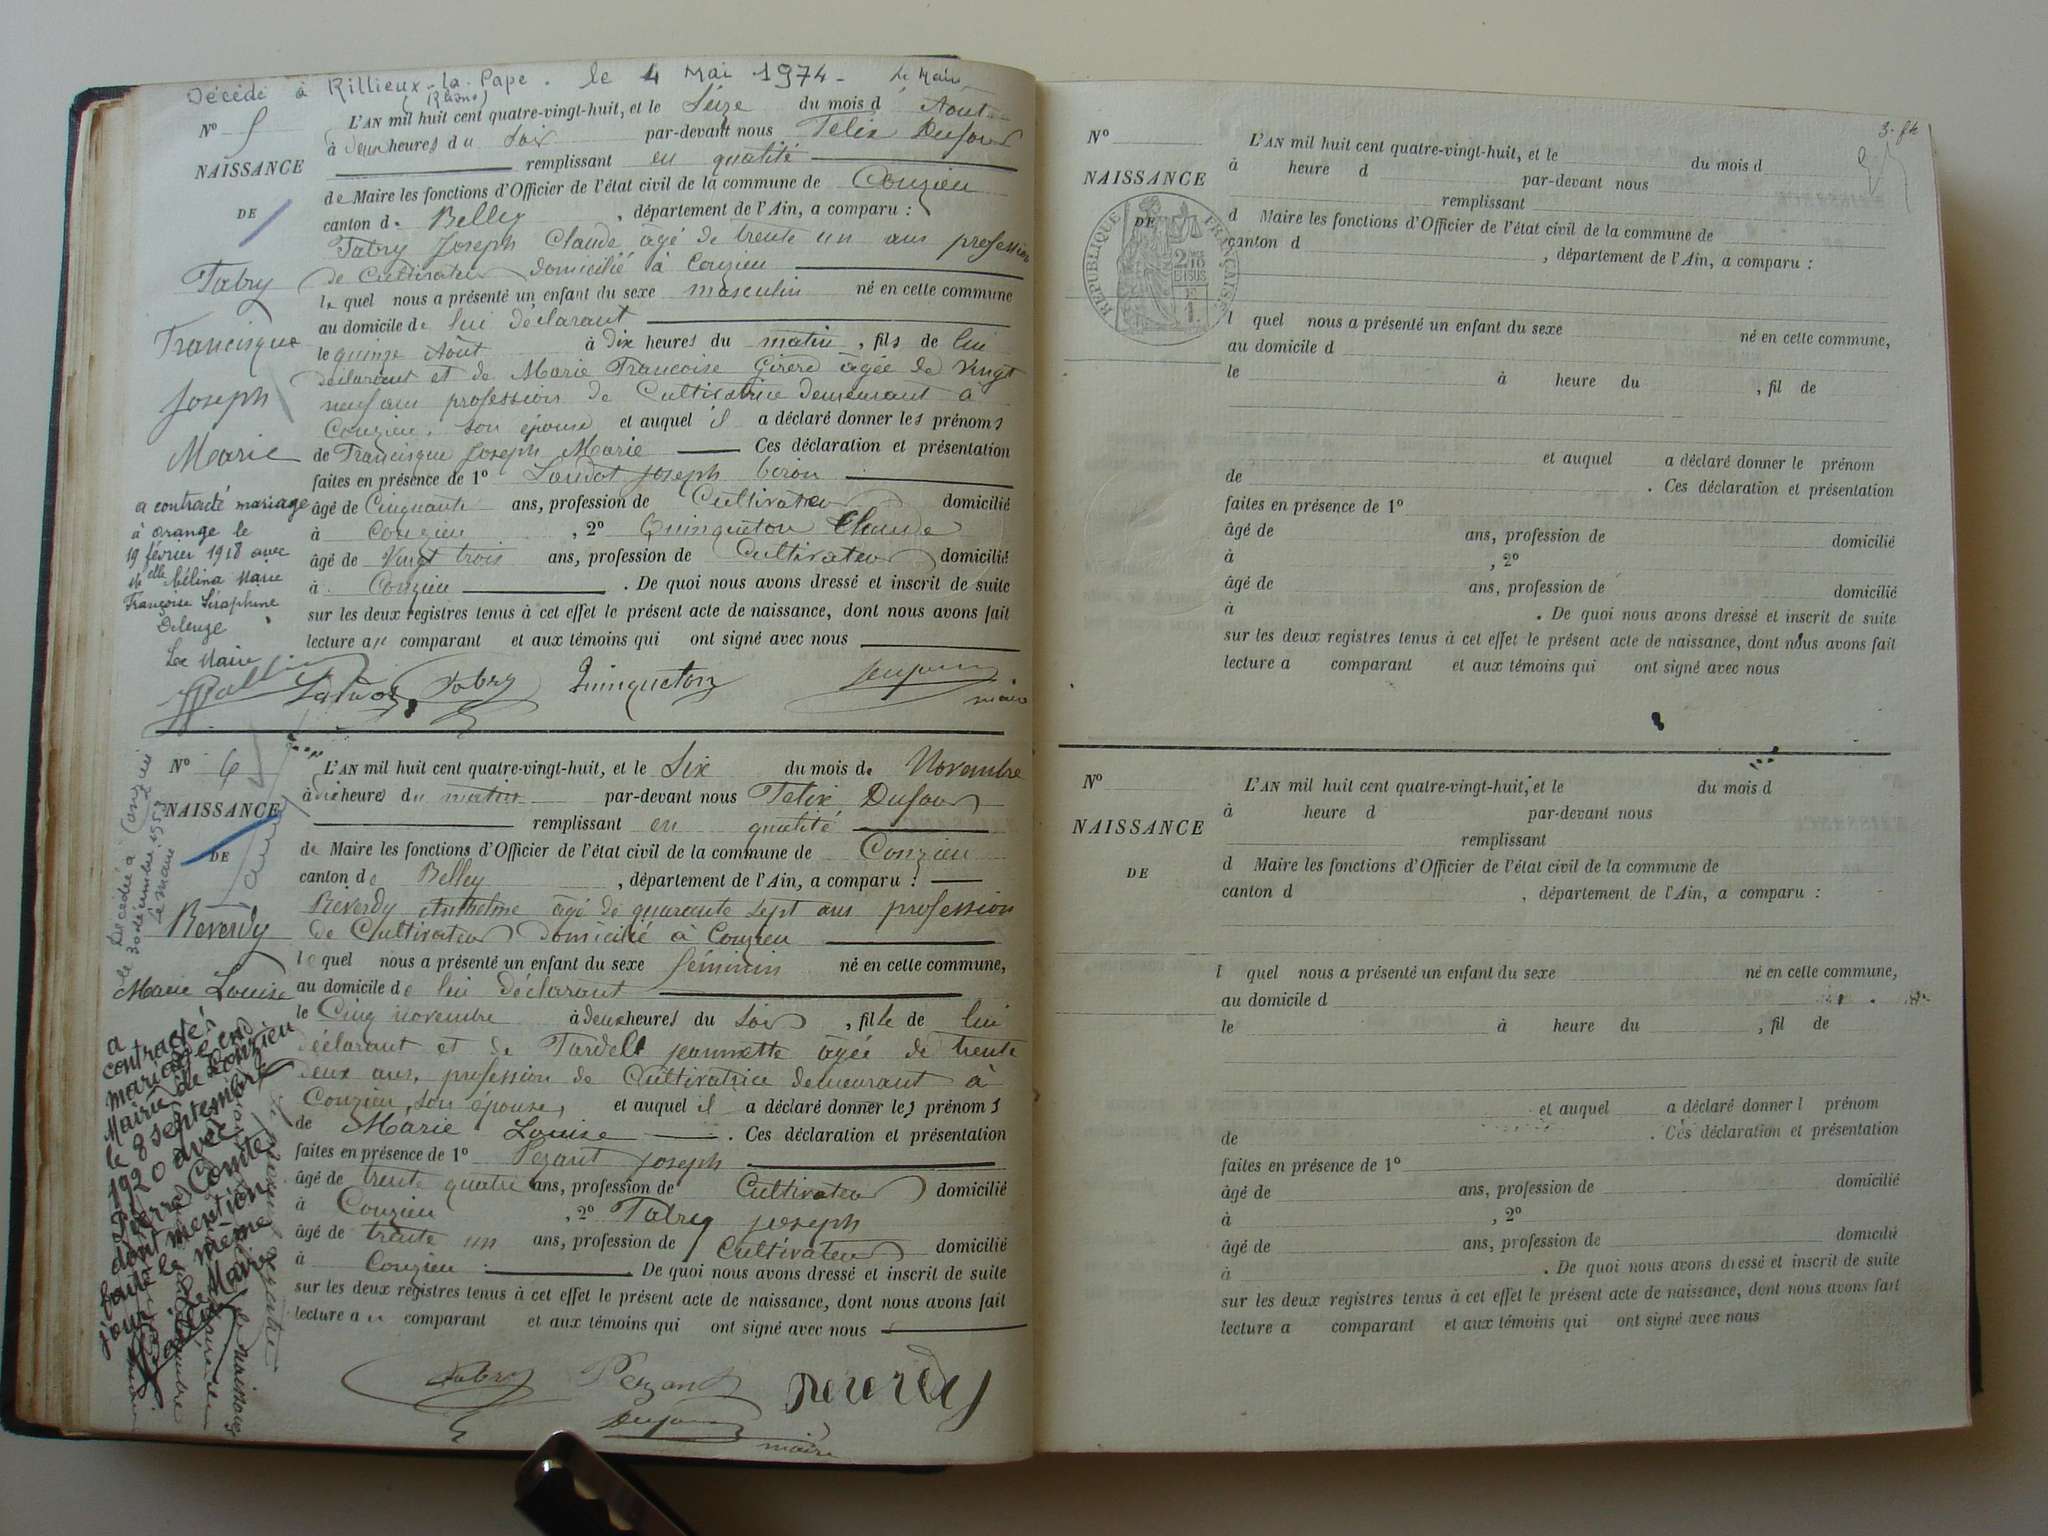 Décédé à Rillieux-la-Pape. le 4 Mai 1974 - le Maire
(Rhône)
N° 5
NAISSANCE
DE
Fabry
Francisque
Joseph
Marie
a contracté mariage
à orange le
19 février 1918 avec
Melle Célina Marie
Françoise Séraphine
Deleuze
Le Maire
L'AN mil huit cent quatre-vingt-huit, et le Seize du mois d' Aout
à deux heures du Soir par-devant nous Félix Dufour
remplissant en qualité
de Maire les fonctions d'Officier de l'état civil de la commune de Conzieu
canton de Belley, département de l'Ain, a comparu :
Fabry Joseph Claude âgé de trente un ans profession
de Cultivateur domicilié à Conzieu
lequel nous a présenté un enfant du sexe masculin né en cette commune
au domicile de lui déclarant
le quinze Aôut à dix heures du matin, fils de lui
déclarant et de Marie Francoise Girerd âgée de Vingt
neuf ans profession de Cultivatrice demeurant à
Conzieu, son épouse et auquel il a déclaré donner les prénoms
de Francisque Joseph Marie Ces déclaration et présentation
faites en présence de 1° Landot Joseph
âgé de Cinquante ans, profession de Cultivateur domicilié
à Conzieu, 2° Quinqueton Claude
âgé de Vingt trois ans, profession de Cultivateur domicilié
à Conzieu. De quoi nous avons dressé et inscrit de suite
sur les deux registres tenus à cet effet le présent acte de naissance, dont nous avons fait
lecture au comparant et aux témoins qui ont signé avec nous
Landot Fabry Quinqueton Dufour
maire
N° 6
NAISSANCE
DE
Reverdy
Marie Louise
Décédée à Conzieu
le 30 décembre 1953
le maire
a
contracté
mariage en
Mairie de Conzieu
le 8 septembre
1920 avec
Pierre Comte
dont mention
faite le même
jour. Le Maire
L'AN mil huit cent quatre-vingt-huit, et le Six du mois de Novembre
à dix heures du matin par-devant nous Felix Dufour
remplissant en qualité
de Maire les fonctions d'Officier de l'état civil de la commune de Conzieu
canton de Belley, département de l'Ain, a comparu :
Reverdy Anthelme âgé de quarante sept ans profession
de Cultivateur domicilié à Conzieu
lequel nous a présenté un enfant du sexe féminin né en cette commune,
au domicile de lui déclarant
le Cinq novembre à deux heures du Soir, fille de lui
déclarant et de Tardell jeannette âgée de trente
deux ans, profession de Cultivatrice demeurant à
Conzieu, son épouse, et auquel il a déclaré donner les prénoms
de Marie Louise. Ces déclaration et présentation
faites en présence de 1° Pezant Joseph
âgé de trente quatre ans, profession de Cultivateur domicilié
à Conzieu, 2° Fabry joseph
âgé de trente un ans, profession de Cultivateur domicilié
à Conzieu. De quoi nous avons dressé et inscrit de suite
sur les deux registres tenus à cet effet le présent acte de naissance, dont nous avons fait
lecture au comparant et aux témoins qui ont signé avec nous
Fabry Pezant reverdy
Dufour
maire
N°
NAISSANCE
DE
RÉPUBLIQUE FRANÇAISE
L'AN mil huit cent quatre-vingt-huit, et le du mois d
à heure d par-devant nous
remplissant
d Maire les fonctions d'Officier de l'état civil de la commune de
canton d, département de l'Ain, a comparu :
l quel nous a présenté un enfant du sexe né en cette commune,
au domicile d
le à heure du, fil de
et auquel a déclaré donner le prénom
de. Ces déclaration et présentation
faites en présence de 1°
âgé de ans, profession de domicilié
à, 2°
âgé de ans, profession de domicilié
à. De quoi nous avons dressé et inscrit de suite
sur les deux registres tenus à cet effet le présent acte de naissance, dont nous avons fait
lecture a comparant et aux témoins qui ont signé avec nous
N°
NAISSANCE
DE
L'AN mil huit cent quatre-vingt-huit, et le du mois d
à heure d par-devant nous
remplissant
d Maire les fonctions d'Officier de l'état civil de la commune de
canton d, département de l'Ain, a comparu :
l quel nous a présenté un enfant du sexe né en cette commune,
au domicile d
le à heure du, fil de
et auquel a déclaré donner l prénom
de. Ces déclaration et présentation
faites en présence de 1°
âgé de ans, profession de domicilié
à, 2°
âgé de ans, profession de domicilié
à. De quoi nous avons dressé et inscrit de suite
sur les deux registres tenus à cet effet le présent acte de naissance, dont nous avons fait
lecture a comparant et aux témoins qui ont signé avec nous